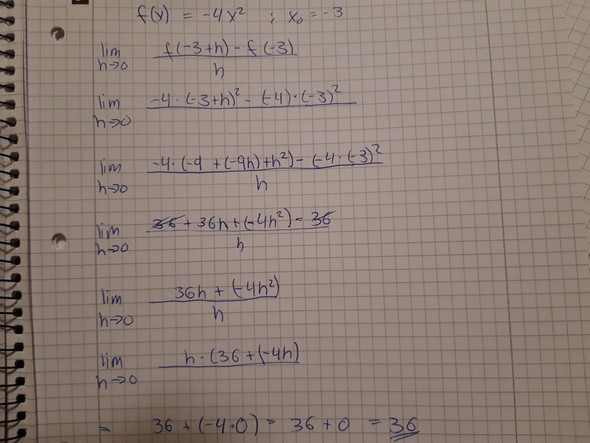 f(x) = -4x² ; x₀ = -3
lim h→0 f(-3+h) - f(-3) / h
lim h→0 -4·(-3+h)² - (-4)·(-3)²
lim h→0 -4·(-9 + (-9h)+h²) - (-4·(-3)² / h
lim h→0 36 + 36h + (-4h²) - 36 / h
lim h→0 36h + (-4h²) / h
lim h→0 h·(36+(-4h)
= 36 + (-4·0) = 36 + 0 = 36